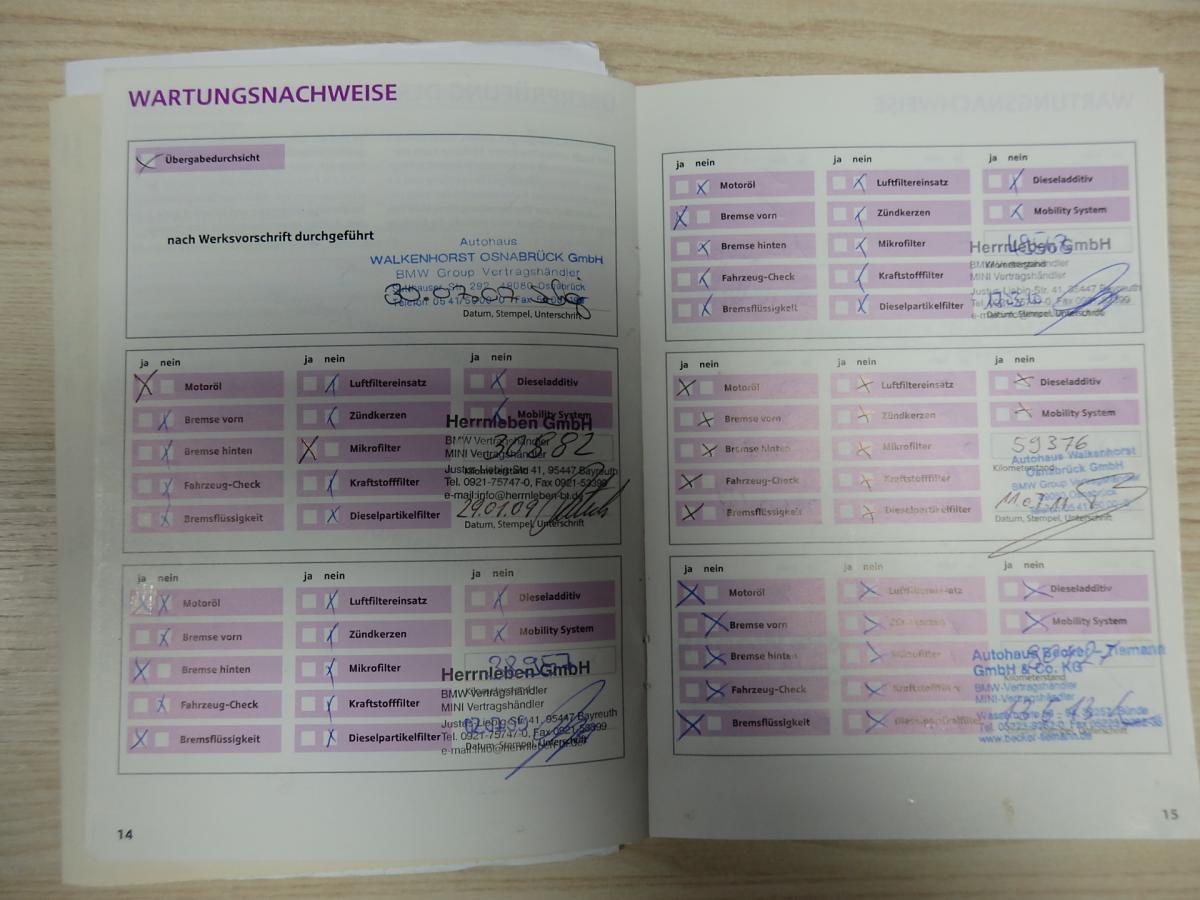 WARTUNGSNACHWEISE
Übergabedurchsicht
nach Werksvorschrift durchgeführt
Autohaus
WALKENHORST OSNABRÜCK GmbH
BMW Group Vertragshändler
Sutthauser Str. 292, 49080 Osnabrück
Datum, Stempel, Unterschrift
ja nein ja nein ja nein
Motoröl Luftfiltereinsatz Dieseladditiv
Bremse vorn Zündkerzen Mobility System
Bremse hinten Mikrofilter
Fahrzeug-Check Kraftstofffilter
Bremsflüssigkeit Dieselpartikelfilter
Herrnleben GmbH
BMW Vertragshändler
MINI Vertragshändler
Kilometerstand
Justus-Liebig-Str. 41, 95447 Bayreuth
Tel. 0921-75747-0, Fax 0921-53399
e-mail:info@herrnleben-bt.de
29.01.09
Datum, Stempel, Unterschrift
ja nein ja nein ja nein
Motoröl Luftfiltereinsatz Dieseladditiv
Bremse vorn Zündkerzen Mobility System
Bremse hinten Mikrofilter
Fahrzeug-Check Kraftstofffilter
Bremsflüssigkeit Dieselpartikelfilter
28957
Herrnleben GmbH
Kilometerstand
BMW Vertragshändler
MINI Vertragshändler
Justus-Liebig-Str. 41, 95447 Bayreuth
Tel. 0921-75747-0, Fax 0921-53399
Datum, Stempel, Unterschrift
14
ja nein ja nein ja nein
Motoröl Luftfiltereinsatz Dieseladditiv
Bremse vorn Zündkerzen Mobility System
Bremse hinten Mikrofilter
Fahrzeug-Check Kraftstofffilter
Bremsflüssigkeit Dieselpartikelfilter
Herrnleben GmbH
BMW Vertragshändler
Kilometerstand
MINI Vertragshändler
Justus-Liebig-Str. 41, 95447 Bayreuth
Tel. 0921-75747-0, Fax 0921-53399
Datum, Stempel, Unterschrift
ja nein ja nein ja nein
Motoröl Luftfiltereinsatz Dieseladditiv
Bremse vorn Zündkerzen Mobility System
Bremse hinten Mikrofilter
Fahrzeug-Check Kraftstofffilter
Bremsflüssigkeit Dieselpartikelfilter
59376
Autohaus Walkenhorst
Kilometerstand
Osnabrück GmbH
BMW Group Vertragshändler
49080 Osnabrück
Datum, Stempel, Unterschrift
ja nein ja nein ja nein
Motoröl Luftfiltereinsatz Dieseladditiv
Bremse vorn Zündkerzen Mobility System
Bremse hinten Mikrofilter
Fahrzeug-Check Kraftstofffilter
Bremsflüssigkeit Dieselpartikelfilter
Autohaus Becker-Tiemann
GmbH & Co. KG
Kilometerstand
BMW-Vertragshändler
MINI-Vertragshändler
www.becker-tiemann.de
15